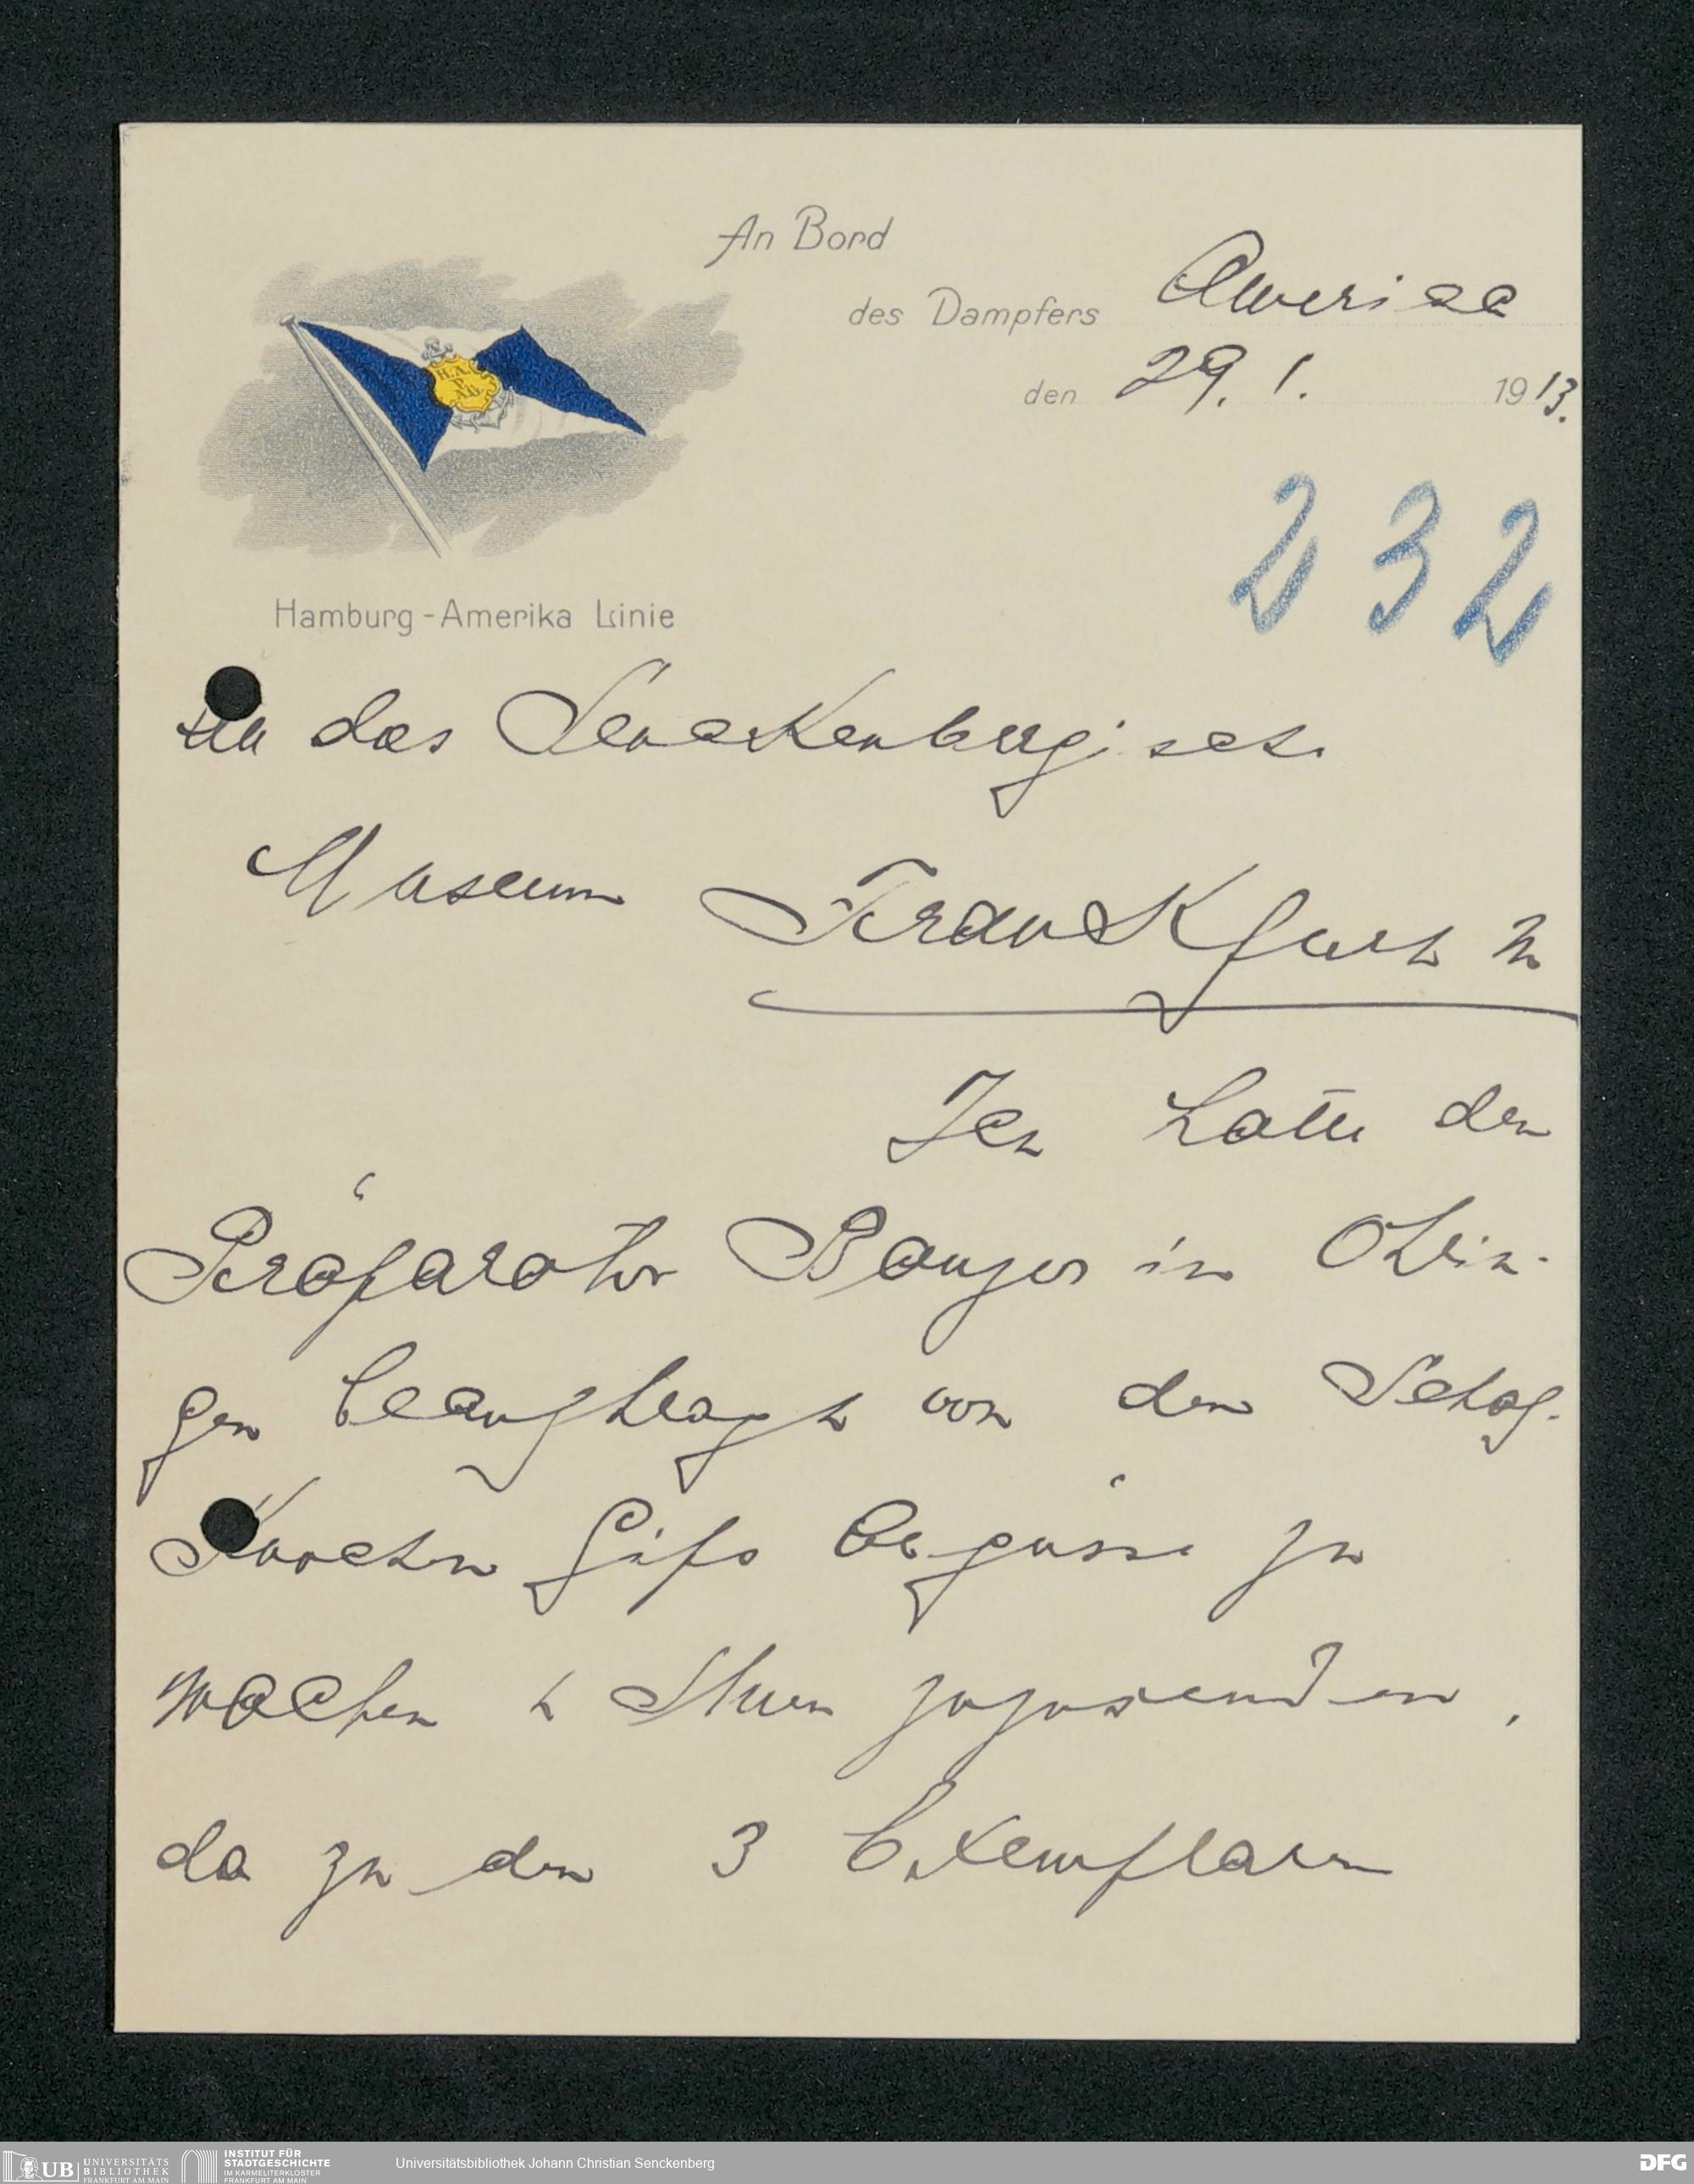 An Bord
des Dampfers America
den 29. 1. 1913.
H.A.
P.
A.G.
232
Hamburg-Amerika Linie
An das Senckenbergisch
Museum Frankfurt M
Ich hatte den
Präparator Banzer in Öhrin-
gen beauftragt von den
Knochen Gips Abgüsse zu
machen & Ihnen zuzusenden,
da zu den 3 Exemplaren
UB UNIVERSITÄTS
BIBLIOTHEK
FRANKFURT AM MAIN
INSTITUT FÜR
STADTGESCHICHTE
IM KARMELITERKLOSTER
FRANKFURT AM MAIN
Universitätsbibliothek Johann Christian Senckenberg
DFG